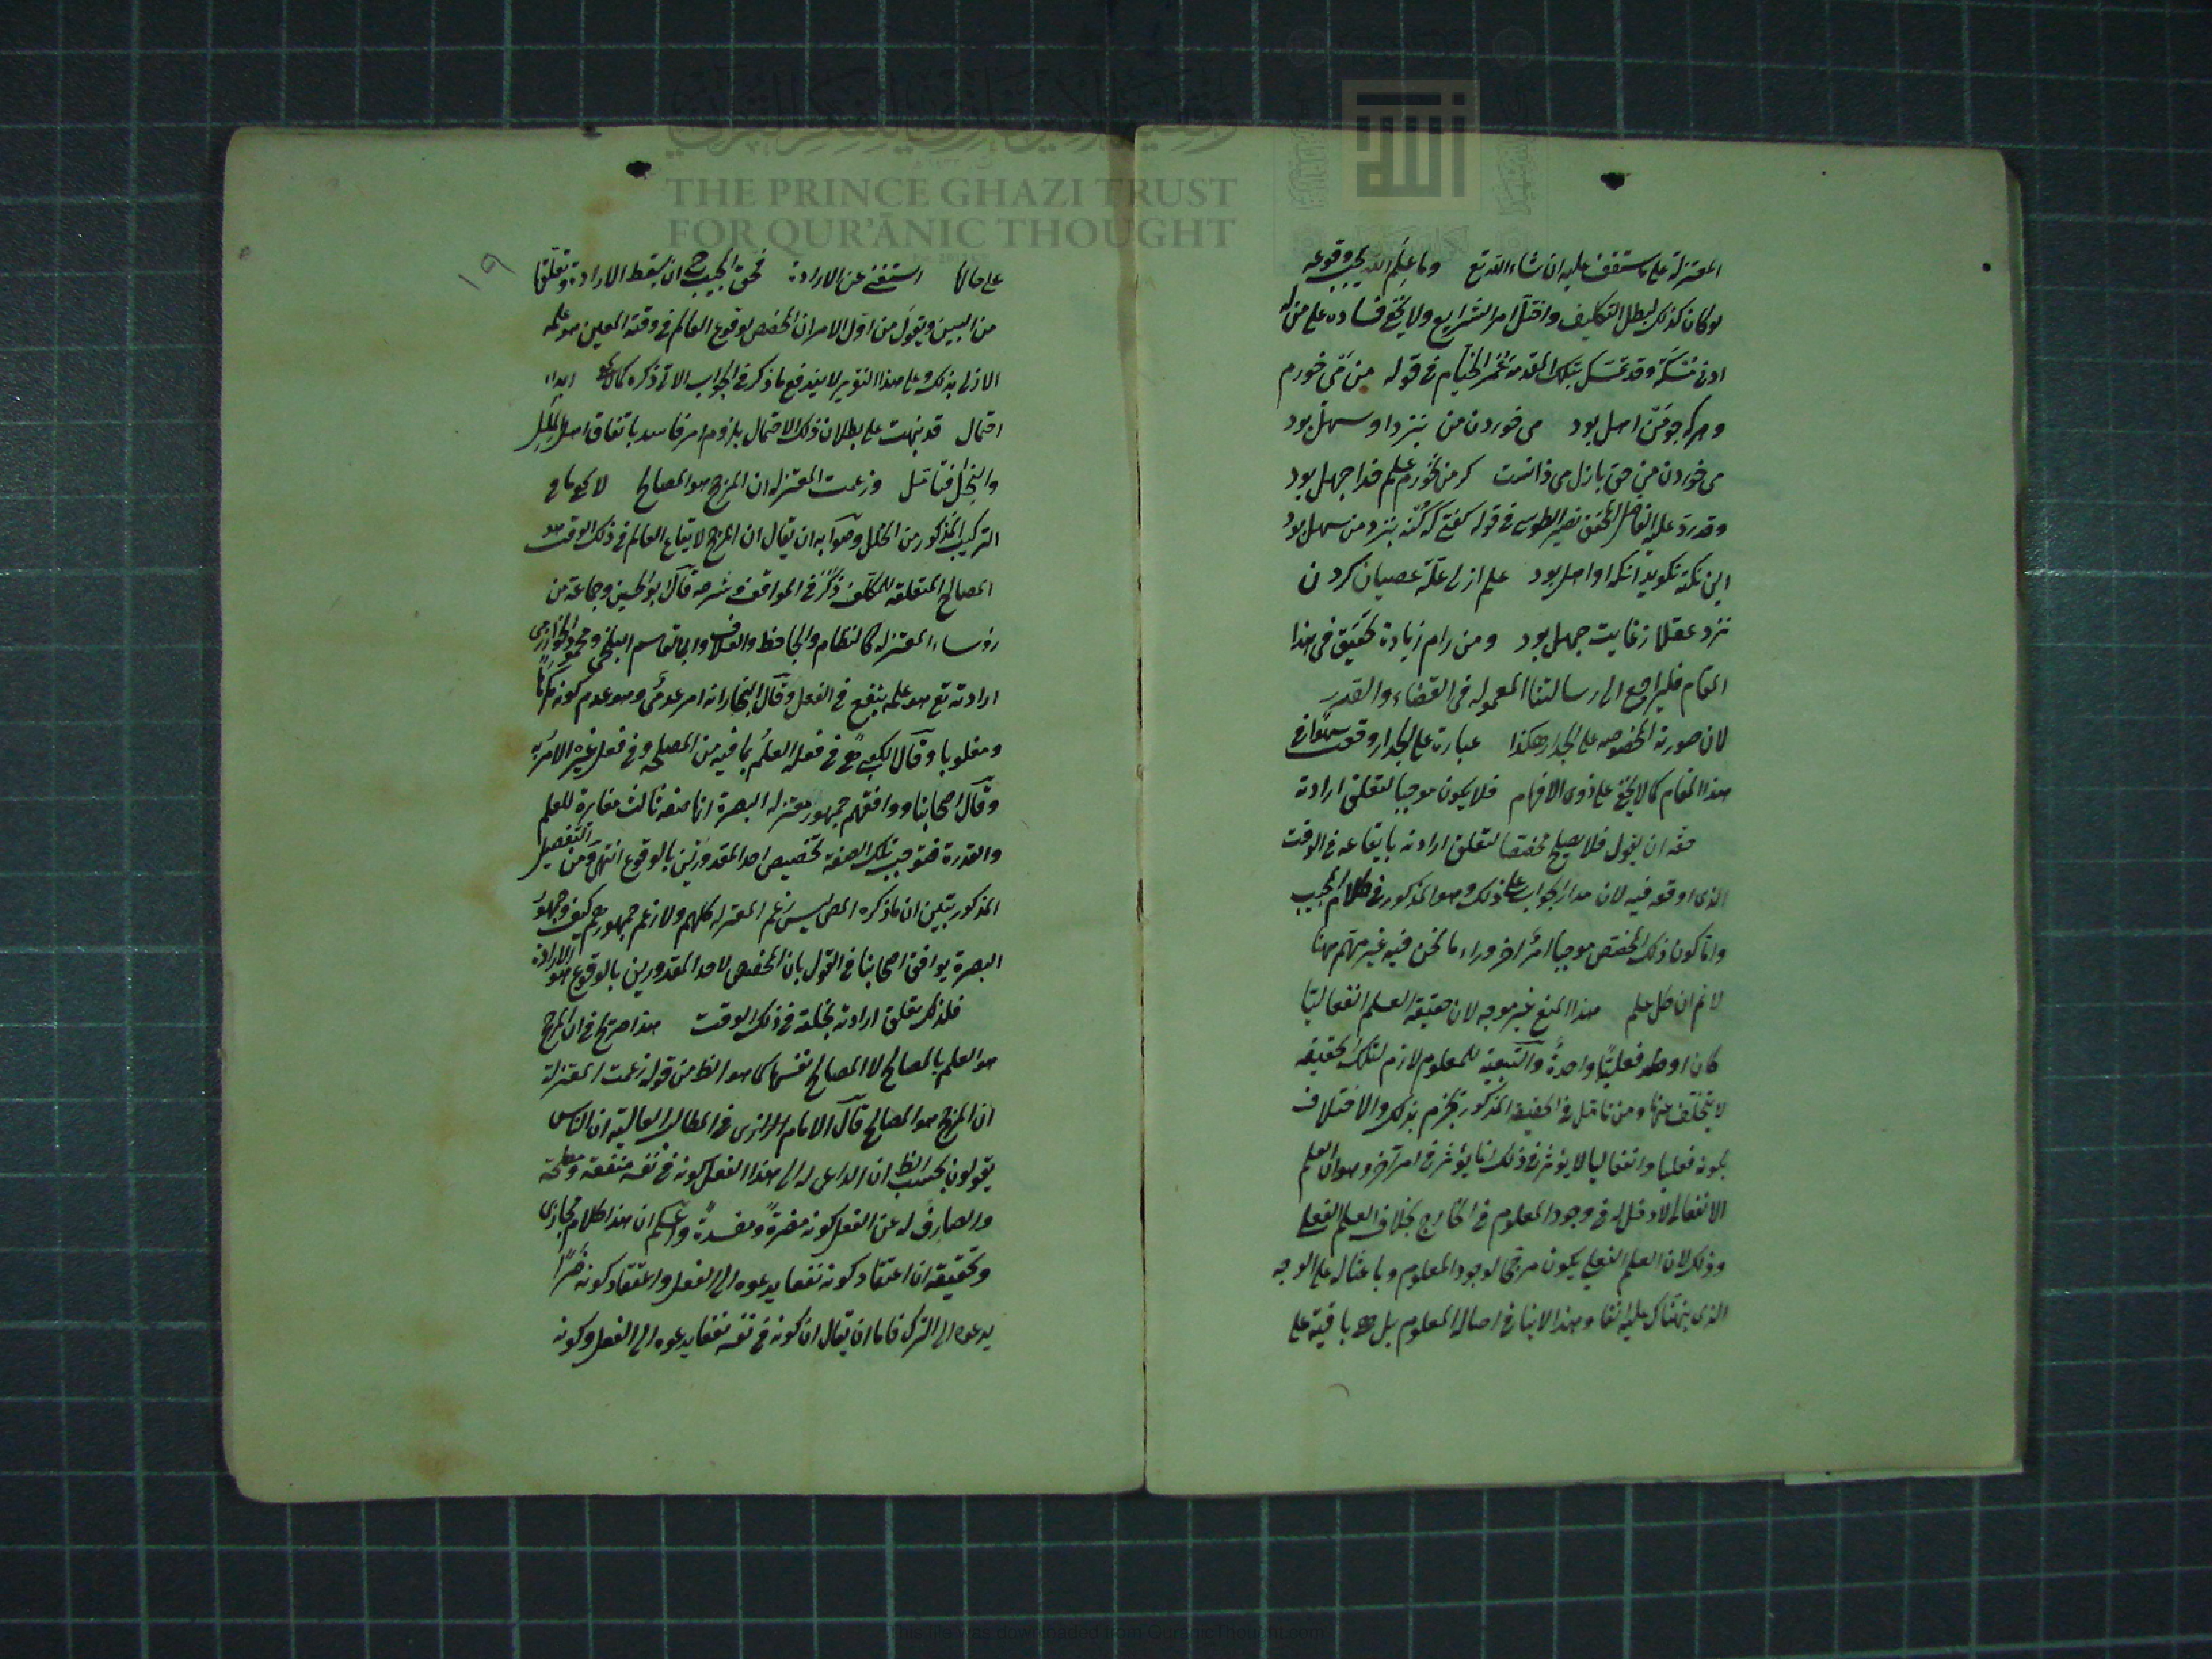 THE PRINCE GHAZI TRUST
FOR QUR'ĀNIC THOUGHT
المعتزلة على ما ستقف عليه ان شاء الله تع وما علم الله يجب وقوعه
لو كان كذلك لبطل التكليف واختل امر الشرايع ولا يخفى فساده على من له
ادنى مسكة وقد تمسك بتلك المقدمة عمر الخيام فى قوله من مى خورم
وهركه چو من اهل بود مى خوردن من بنزد او سهل بود
مى خوردن من حق بازل مى دانست كر من نخورم علم خدا جهل بود
وقد رد عليه الفاضل المحقق نصير الطوسى فى قوله كفتى كه كنه بنزد من سهل بود
اين نكته نكويد انكه او اهل بود علم ازلى علة عصيان كردن
نزد عقلا زغايت جهل بود ومن رام زيادة تحقيق فى هذا
المقام فليراجع الى رسالتنا المعموله فى القضاء والقدر
لان صورته المخصوصه على الجدار هكذا عبارة على الجدار وقعت سهوا فى
هذا المقام كما لا يخفى على ذوى الافهام فلا يكون موجبا لتعلق ارادته
حقه ان يقول فلا يصلح مخصصا لتعلق ارادته بايقاعه فى الوقت
الذى اوقعه فيه لان مدار الجواب على ذلك وهو المذكور فى كلام المجيب
واما كون ذلك المخصص موجبا امر اخر وراء ما نحن فيه غير مهم هنا
لا نم ان كل علم هذا المنع غير موجه لان حقيقة العلم انفعاليا
كان او فعليا واحدة والتبعية للمعلوم لازم لتلك الحقيقه
لا يتخلف عنها ومن تامل فى الحقيقة المذكورة يجزم بذلك والاختلاف
بكونه فعليا وانفعاليا لا يؤثر فى ذلك انما يؤثر فى امر آخر وهو ان العلم
الانفعالى لا دخل له فى وجود المعلوم فى الخارج بخلاف العلم الفعلى
وذلك لان العلم الفعلى يكون مرجحا لوجود المعلوم وباعثا له على الوجه
الذى نبهناك عليه انفا وهذا لا ينافى اصالة المعلوم بل هى باقية على
١٩
على حالها استغنى عن الارادة فحق المجيب ح ان يسقط الارادة وتعلقها
من البين ويقول من اول الامر ان المخصص لوقوع العالم فى وقته المعين هو علمه
الازلى بذلك وعلى هذا التقرير لا يندفع ما ذكر فى الجواب الاتى ذكره كما لا يخفى ابداء
احتمال قد نبهت على بطلان ذلك الاحتمال بلزوم امر فاسد باتفاق اهل الملل
والنحل فتامل وزعمت المعتزله ان المرجح هو المصالح لا يخفى ما فى
التركيب المذكور من الخلل وصوابه ان يقال ان المرجح لايقاع العالم فى ذلك الوقت هو
المصالح المتعلقه للمكلف ذكر فى المواقف وشرحه قال ابو الحسين وجماعة من
رؤساء المعتزله كالنظام والجاحظ والعلاف وابى القاسم البلخى ومحمود الخوارزمى
ارادته تع هو علمه بنفع فى الفعل وقال النجار انه امر عدمى وهو عدم كونه مكرها
ومغلوبا وقال الكعبى هى فى فعله العلم بما فيه من المصلحه وفى فعل غيره الامر به
وقال اصحابنا ووافقهم جمهور معتزلة البصرة انها صفه ثالثه مغايرة للعلم
والقدرة فتوجب تلك الصفة تخصيص احد المقدورين بالوقوع انتهى ومن التفصيل
المذكور تبين ان ما ذكره المص ليس زعم المعتزله كلهم ولا زعم جمهورهم كيف وجمهور
البصرة يوافق اصحابنا فى القول بان المخصص لاحد المقدورين بالوقوع هو الارادة
فلذلك تعلق ارادته بخلقه فى ذلك الوقت هذا صريح فى ان المرجح
هو العلم بالمصالح لا المصالح نفسها كما هو الظ من قوله زعمت المعتزلة
ان المرجح هو المصالح قال الامام الرازى فى المطالب العاليه ان الناس
يقولون بحسب الظ ان الداعى له الى هذا الفعل كونه فى نفسه منفعة ومصلحة
والصارف له عن الفعل كونه مضرة ومفسدة واعلم ان هذا كلام مجازى
وتحقيقه ان اعتقاد كونه نفعا يدعوه الى الفعل واعتقاد كونه ضرا
يدعوه الى الترك فاما ان يقال ان كونه فى نفسه نفعا يدعوه الى الفعل وكونه